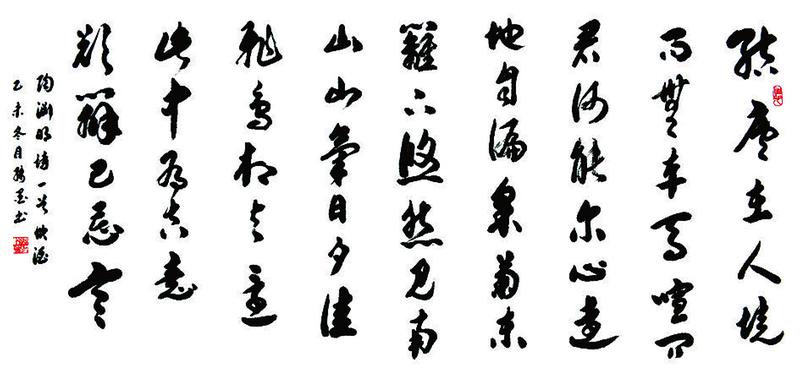 結廬在人境
而無車馬喧問
君何能尔心遠
地自偏采菊東
籬下悠然見南
山山氣日夕佳
飛鳥相與還
此中有真意
欲辨已忘言
陶淵明詩一首飲酒
乙未冬月書